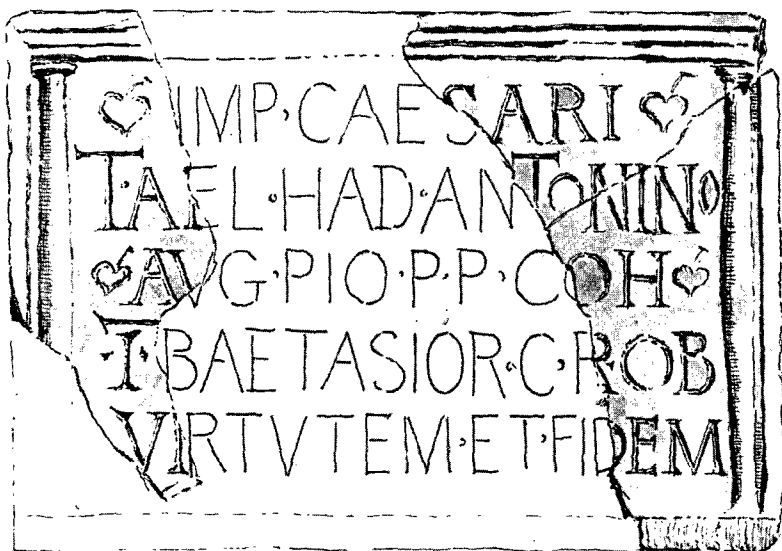 IMP·CAESARI
T·AEL·HAD·ANTONINO
AVG·PIO·P·P·COH
·I·BAETASIOR·C·R·OB
VIRTVTEM·ET·FIDEM